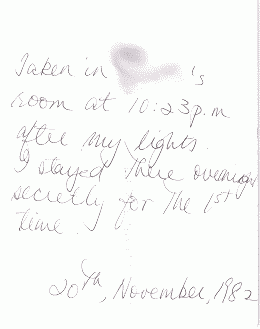 Taken in 's
room at 10:23p.m
after my lights.
I stayed there overnight
secretly for the 1st
time.
20th, November, 1982